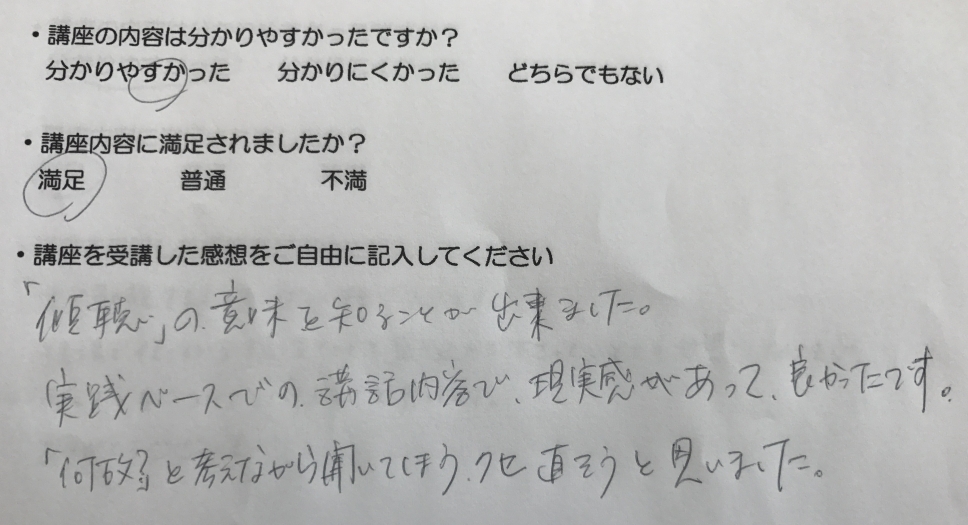 ・講座の内容は分かりやすかったですか？
分かりやすかった 分かりにくかった どちらでもない
・講座内容に満足されましたか？
満足 普通 不満
・講座を受講した感想をご自由に記入してください
「傾聴」の意味を知ることが出来ました。
実践ベースでの講話内容で、現実感があって、良かったです。
「何故」と考えながら聞いてしまうクセ直そうと思いました。